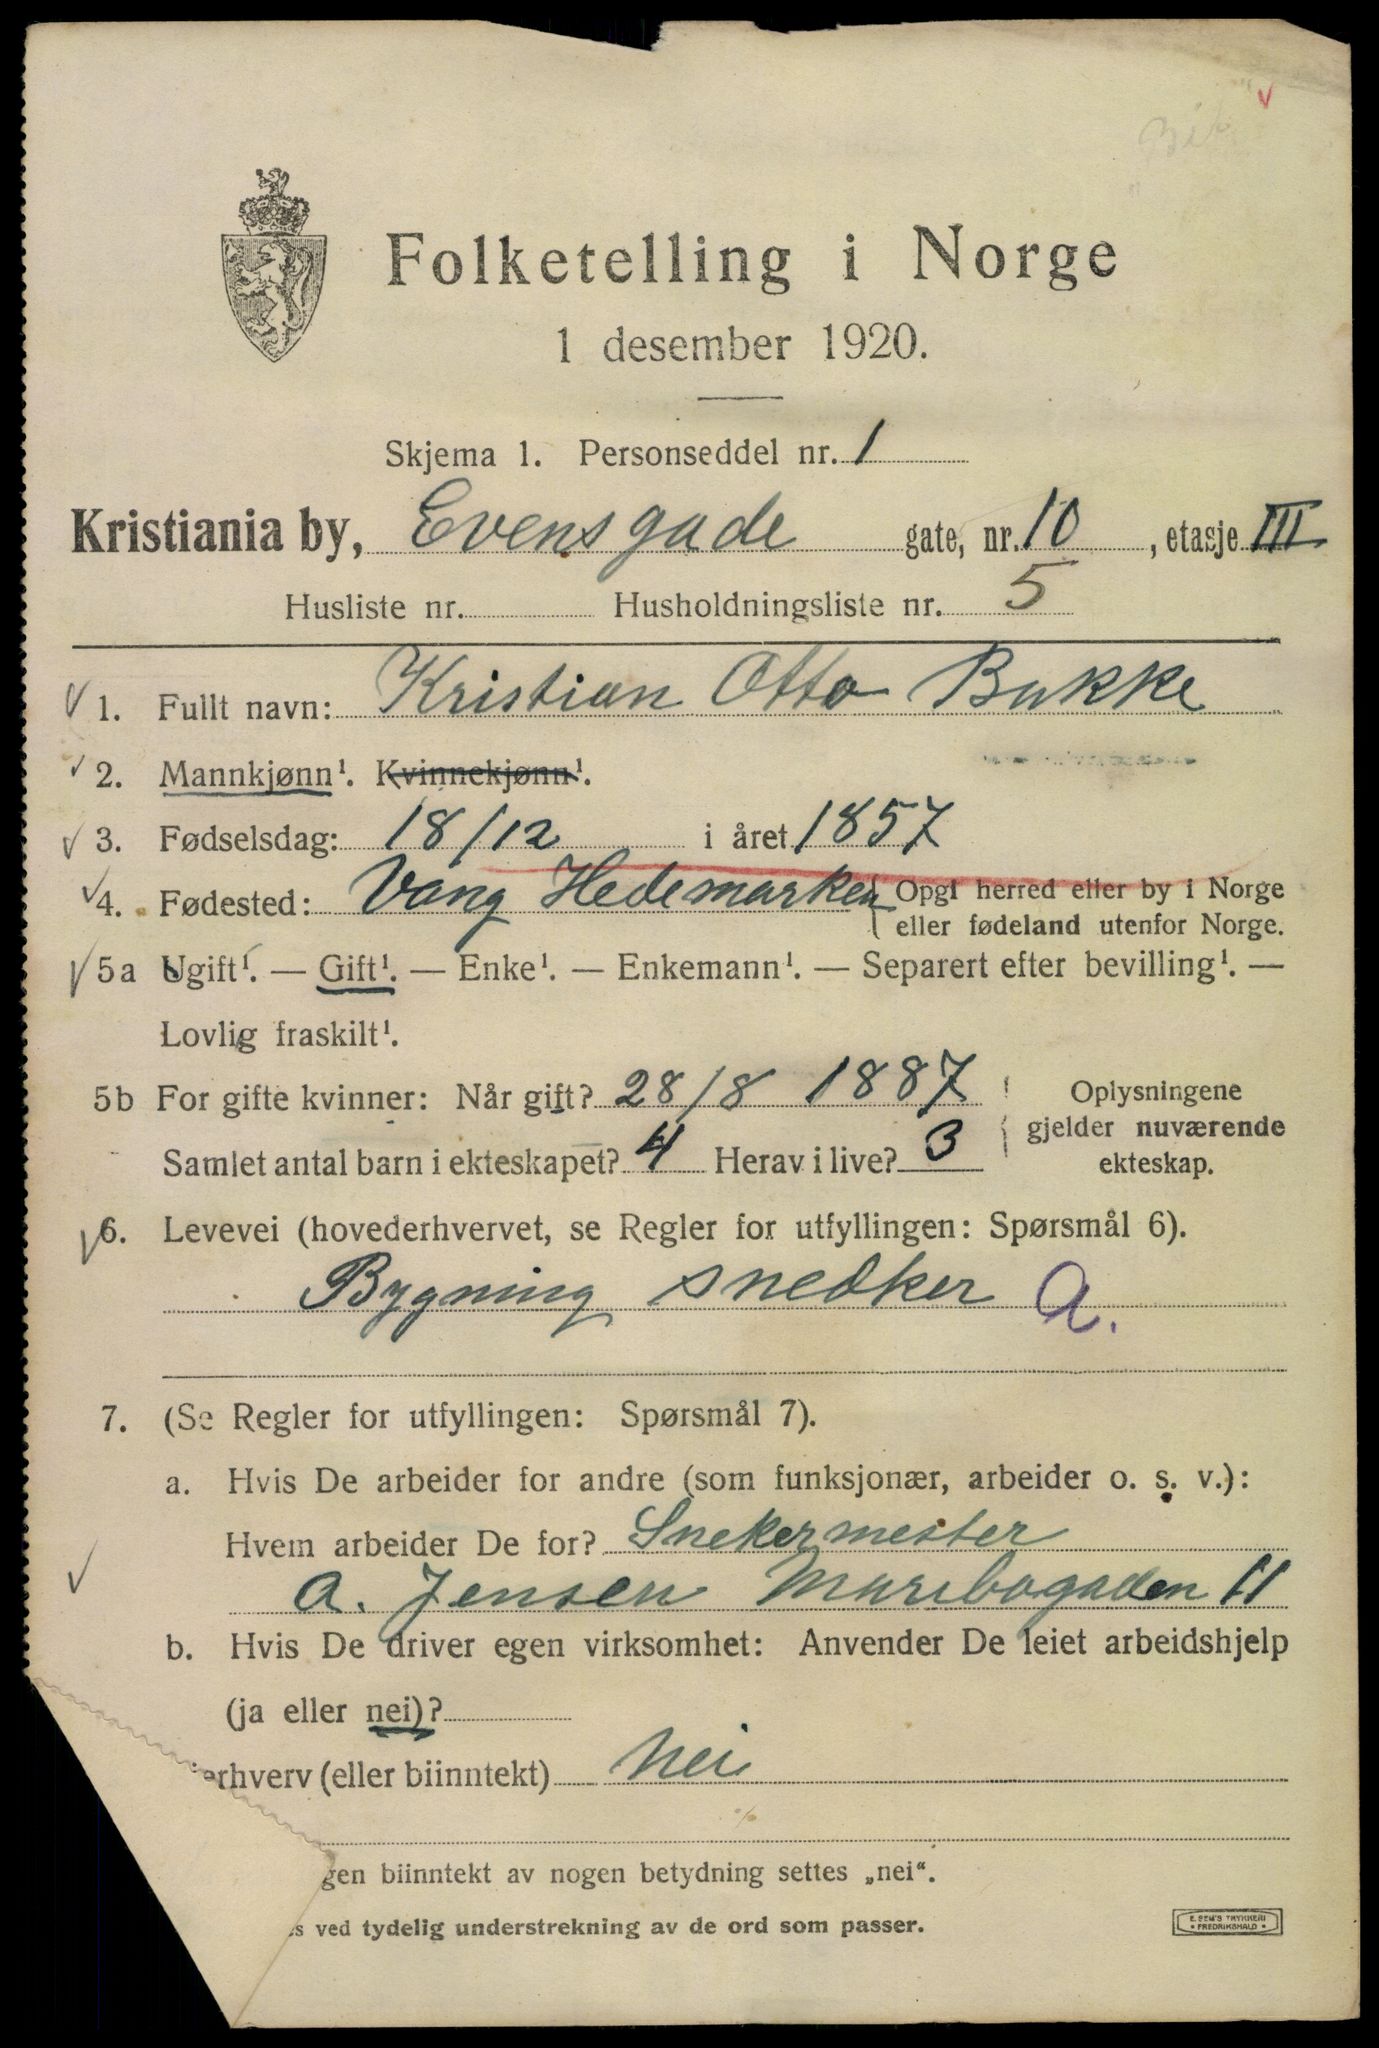 Folketelling i Norge
1 desember 1920.
Skjema 1. Personseddel nr. 1
Kristiania by, Evensgade gate, nr. 10, etasje III
Husliste nr. Husholdningsliste nr. 5
1. Fullt navn: Kristian Otto Bakke
2. Mannkjønn¹. Kvinnekjønn¹.
3. Fødselsdag: 18/12 i året 1857
4. Fødested: Vang Hedemarken { Opgi herred eller by i Norge
eller fødeland utenfor Norge.
5a Ugift¹. — Gift¹. — Enke¹. — Enkemann¹. — Separert efter bevilling¹. —
Lovlig fraskilt¹.
5b For gifte kvinner: Når gift? 28/8 1887 Oplysningene
gjelder nuværende
Samlet antal barn i ekteskapet? 4 Herav i live? 3 ekteskap.
6. Levevei (hovederhvervet, se Regler for utfyllingen: Spørsmål 6).
Bygning snedker A.
7. (Se Regler for utfyllingen: Spørsmål 7).
a. Hvis De arbeider for andre (som funksjonær, arbeider o. s. v.):
Hvem arbeider De for? Snekermester
A. Jensen Maribogaden 11
b. Hvis De driver egen virksomhet: Anvender De leiet arbeidshjelp
(ja eller nei)?
ierhverv (eller biinntekt) Nei
gen biinntekt av nogen betydning settes „nei“.
s ved tydelig understrekning av de ord som passer.
E. SEM'S TRYKKERI
• FREDRIKSHALD •